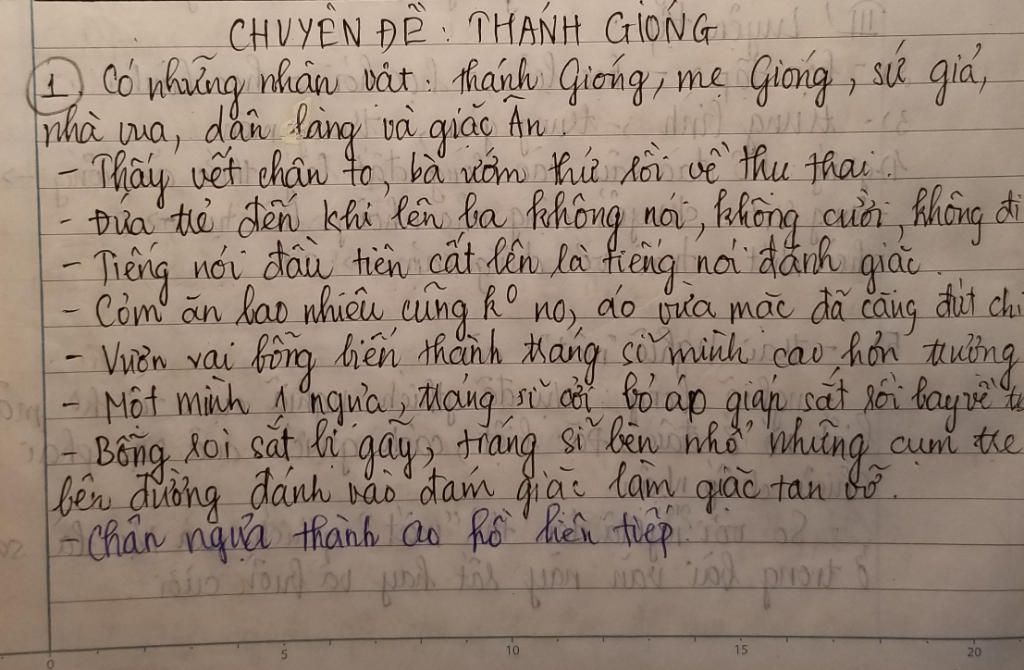 CHUYÊN ĐỀ: THÁNH GIÓNG
1 Có những nhân vật: thánh Gióng, mẹ Gióng, sứ giả,
nhà vua, dân làng và giặc Ân.
- Thấy vết chân to, bà ướm thử rồi về thụ thai.
- Đứa trẻ đến khi lên ba không nói, không cười, không đi
- Tiếng nói đầu tiên cất lên là tiếng nói đánh giặc.
- Cơm ăn bao nhiêu cũng k° no, áo vừa mặc đã căng đứt chỉ
- Vươn vai bỗng biến thành tráng sĩ mình cao hơn trượng
- Một mình 1 ngựa, tráng sĩ cởi bỏ áp giáp sắt rồi bay về
- Bỗng roi sắt bị gãy, tráng sĩ bèn nhổ những cụm tre
bên đường đánh vào đám giặc làm giặc tan vỡ.
- Chân ngựa thành ao hồ liên tiếp.
5
10
15
20